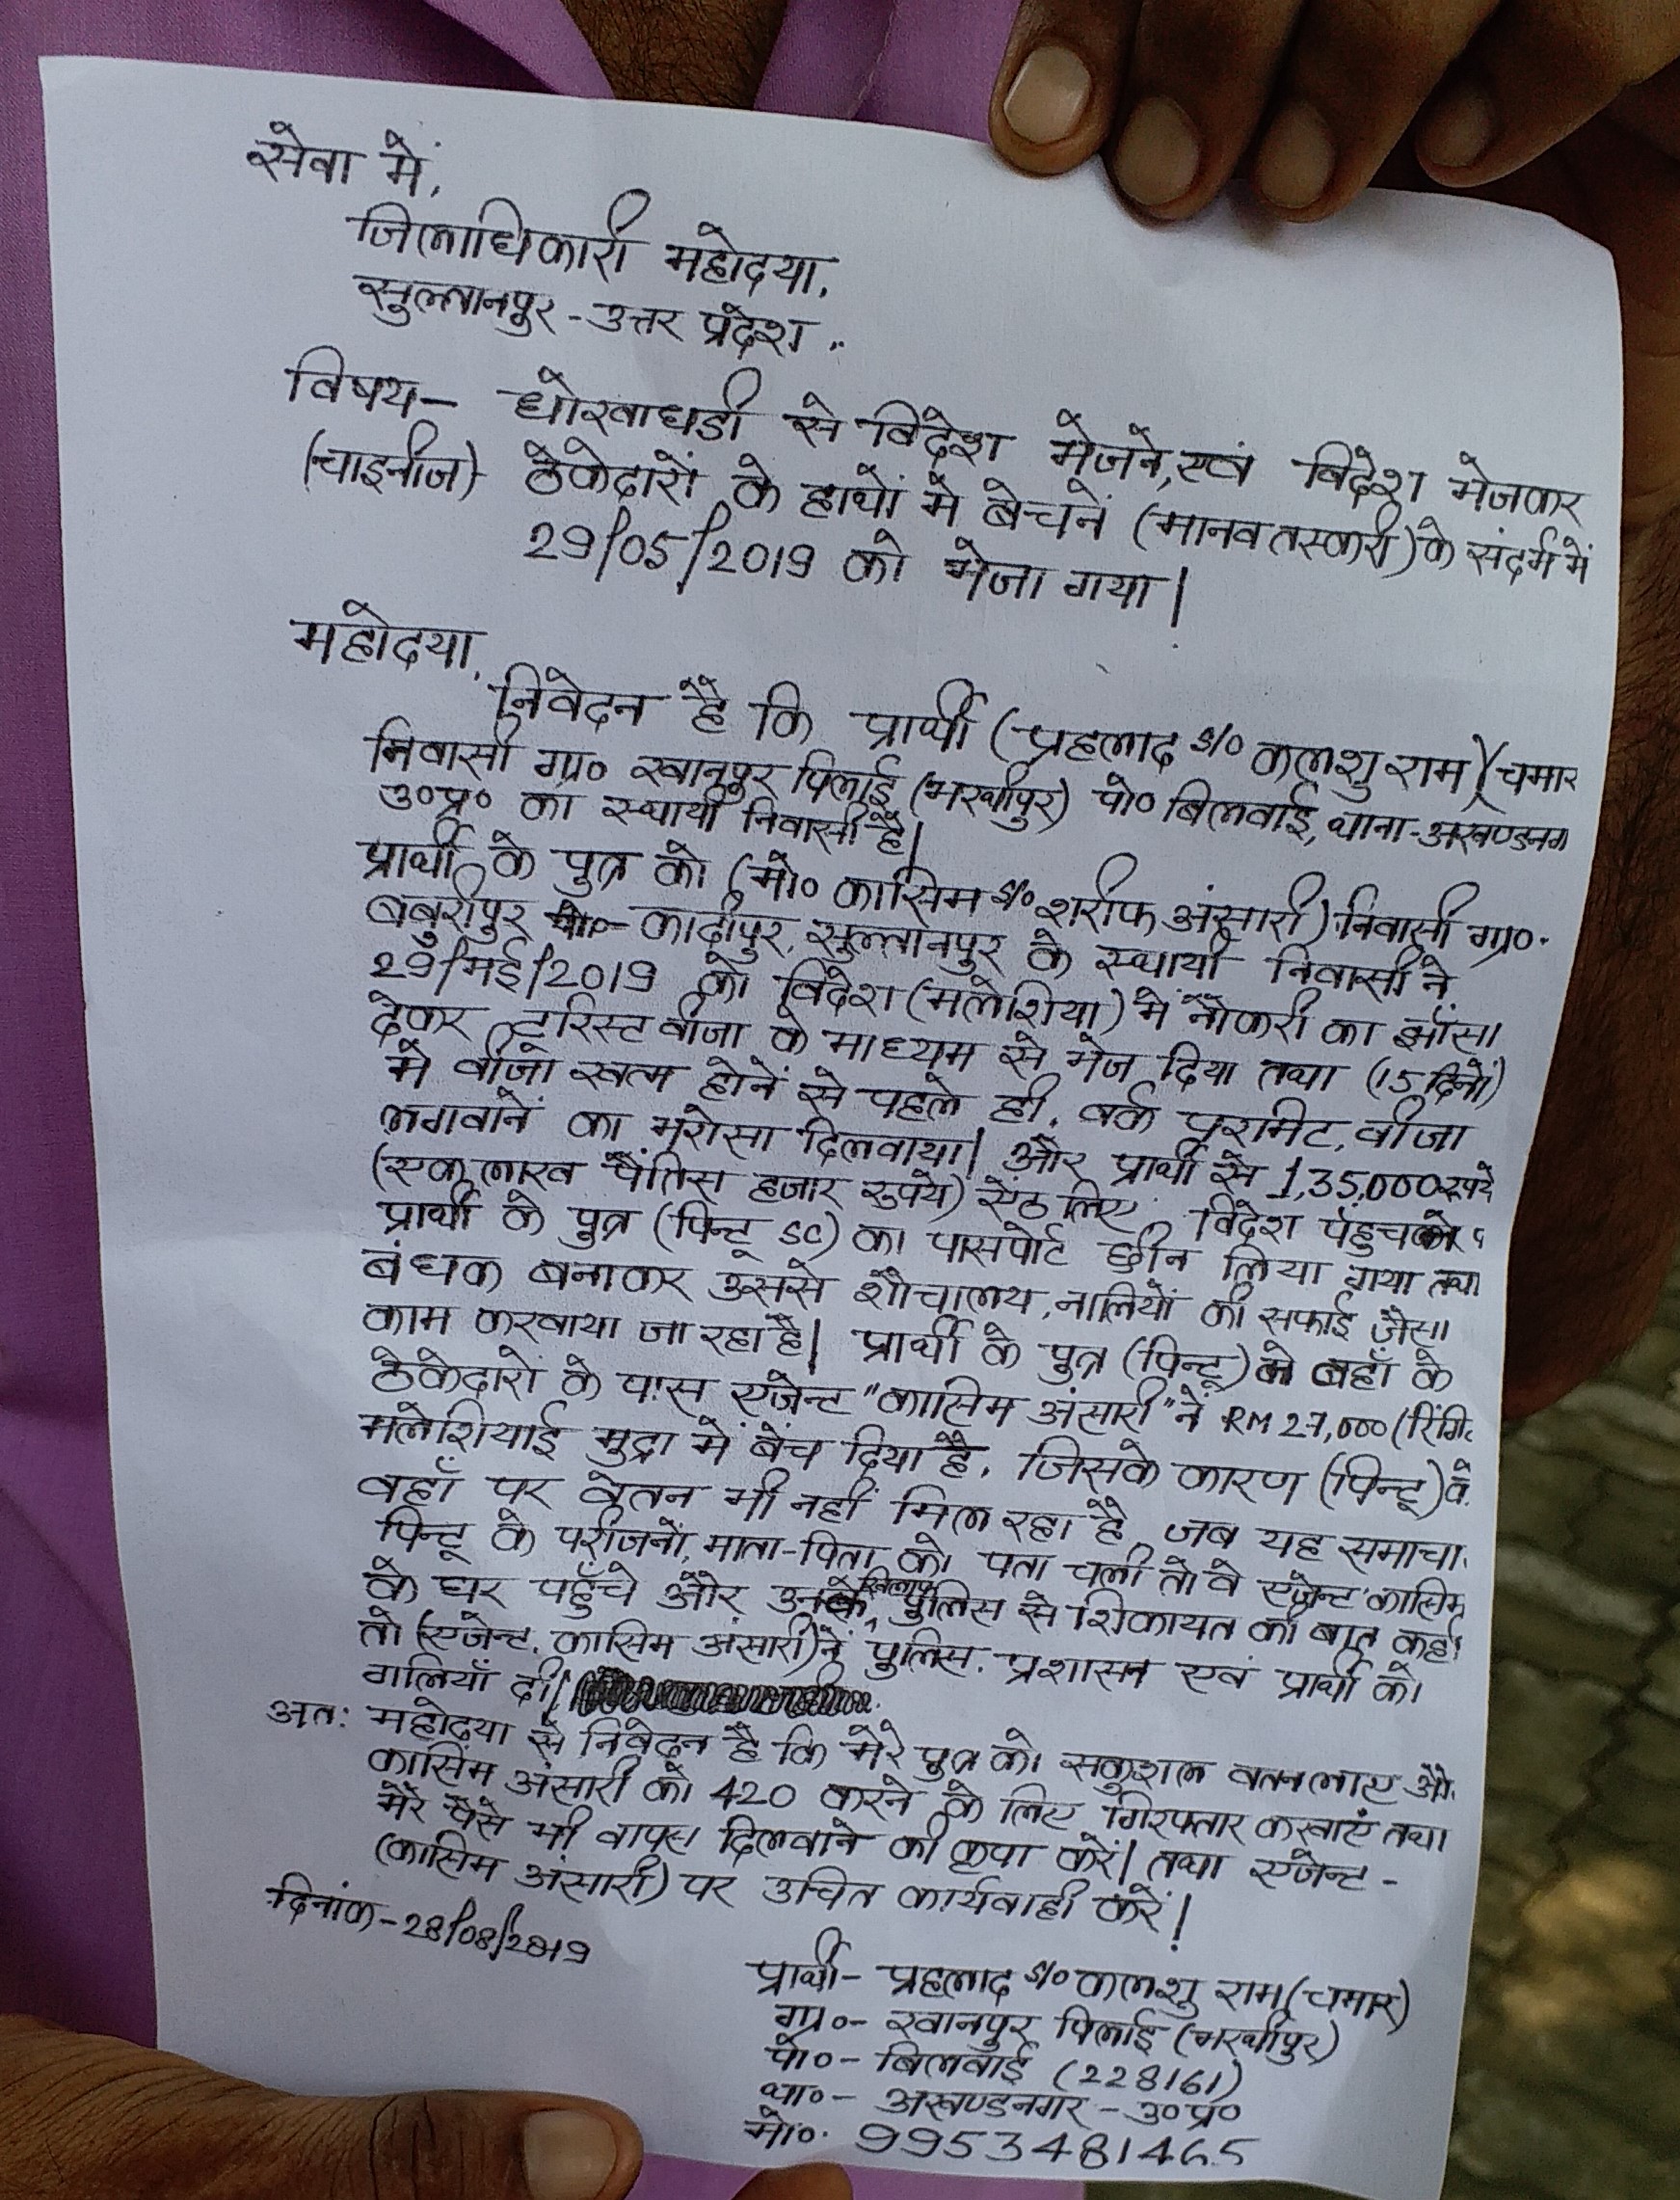 सेवा में,
जिलाधिकारी महोदया,
सुल्तानपुर - उत्तर प्रदेश ..
विषय- धोखाधडी से विदेश भेजने, एवं विदेश भेजकर
(चाइनीज) ठेकेदारों के हाथों में बेचनें (मानव तस्करी) के संदर्भ में
29/05/2019 को भेजा गया।
महोदया,
निवेदन है कि प्रार्थी (प्रहलाद s/o कलशु राम) (चमार
निवासी ग्रा० खानपुर पिलाई (भरथीपुर) पो० बिलवाई, थाना-अखण्डनग
उ०प्र० का स्थायी निवासी है।
प्रार्थी के पुत्र को (मो० कासिम s/o शरीफ अंसारी) निवासी ग्रा०.
बबुरीपुर पो०- कादीपुर, सुल्तानपुर के स्थायी निवासी ने
29/मई/2019 को विदेश (मलेशिया) में नौकरी का झाँसा
देकर टूरिस्ट वीजा के माध्यम से भेज दिया तथा (15 दिनों)
में वीजा खत्म होनें से पहले ही, वर्क परमिट, वीजा
लगवानें का भरोसा दिलवाया। और प्रार्थी से 1,35,000 रूपये
(एक लाख पैंतिस हजार रुपये) ऐंठ लिए. विदेश पँहुचकर
प्रार्थी के पुत्र (पिन्टू SC) का पासपोर्ट छीन लिया गया तथा
बंधक बनाकर उससे शौचालय, नालियों की सफाई जैसा
काम करवाया जा रहा है। प्रार्थी के पुत्र (पिन्टू) को वहाँ के
ठेकेदारों के पास एजेन्ट "कासिम अंसारी" नें RM 27,000 (रिंगि
मलेशियाई मुद्रा में बेंच दिया है, जिसके कारण (पिन्टू) के
वहाँ पर वेतन भी नहीं मिल रहा है, जब यह समाचा
पिन्टू के परीजनों, माता-पिता को पता चली तो वे एजेन्ट कासिम
के घर पहुँचे और उनके खिलाफ पुलिस से शिकायत की बात कही
तो (एजेन्ट. कासिम अंसारी) नें पुलिस. प्रशासन एवं प्रार्थी को
गलियाँ दी।
अत: महोदया से निवेदन है कि मेरे पुत्र को सकुशल वतन लाए औ
कासिम अंसारी को 420 करने के लिए गिरफ्तार करवाएं तथा
मेरे पैसे भी वापस दिलवाने की कृपा करें। तथा एजेन्ट -
(कासिम अंसारी) पर उचित कार्यवाही करें!
दिनांक - 28/08/2019
प्रार्थी - प्रहलाद s/o कलशु राम (चमार)
ग्रा०- खानपुर पिलाई (भरथीपुर)
पो०- बिलवाई (228161)
था०- अखण्डनगर - उ०प्र०
मो०. 9953481465